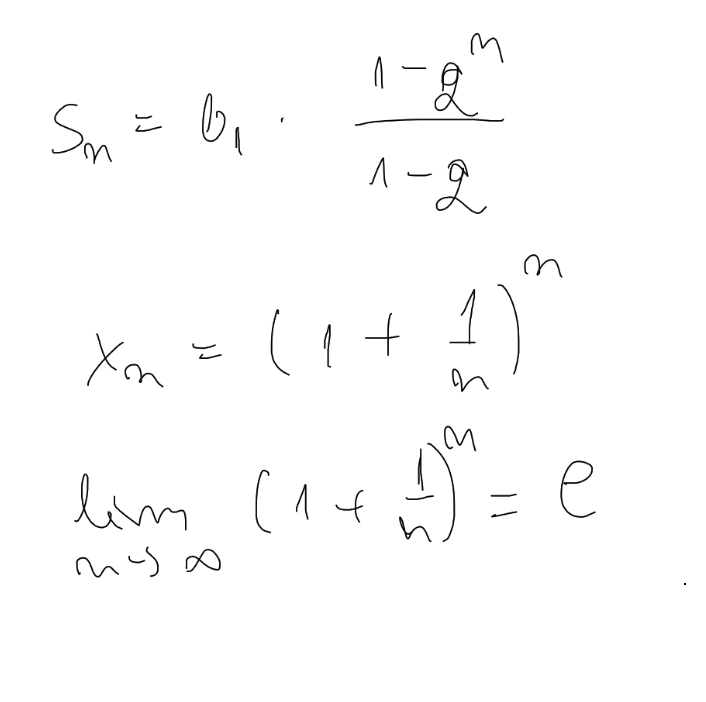 Sₙ = b₁ · (1 - qⁿ)/(1 - q)
xₙ = (1 + 1/n)ⁿ
lim n→∞ (1 + 1/n)ⁿ = e